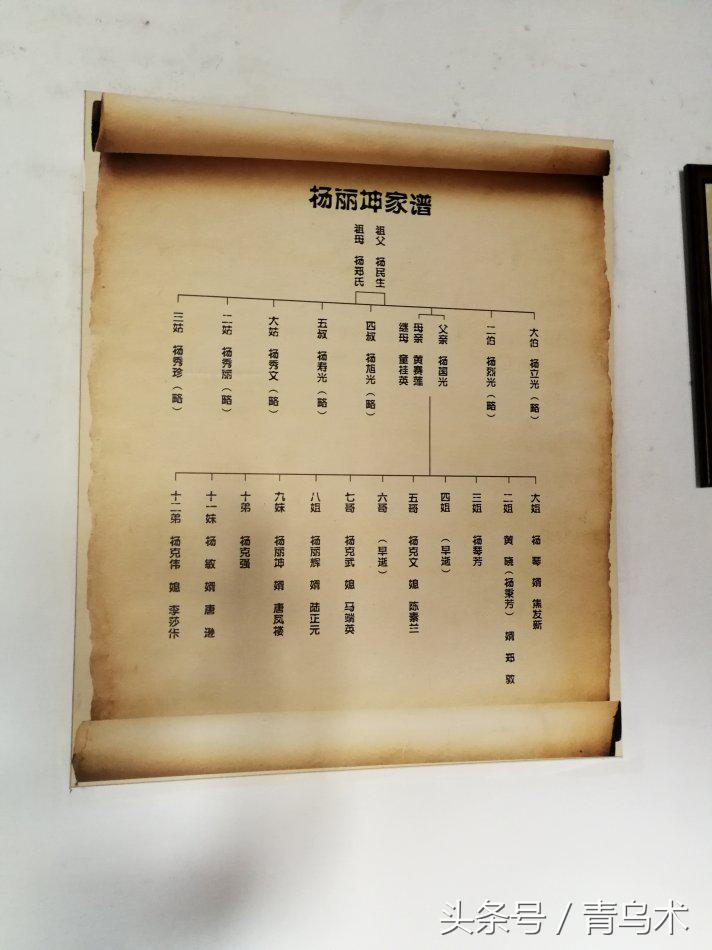 杨丽坤家谱
祖父 杨民生
祖母 杨郑氏
大伯 杨立光（略）
二伯 杨烈光（略）
父亲 杨国光
母亲 黄赛莲
继母 童桂英
四叔 杨旭光（略）
五叔 杨寿光（略）
大姑 杨秀文（略）
二姑 杨秀丽（略）
三姑 杨秀珍（略）
大姐 杨 琴 婿 焦发新
二姐 黄 晓（杨秉芳） 婿 郑 敦
三姐 杨琴芳
四姐 （早逝）
五哥 杨克文 媳 陈素兰
六哥 （早逝）
七哥 杨克武 媳 马端英
八姐 杨丽辉 婿 陆正元
九妹 杨丽坤 婿 唐凤楼
十弟 杨克强
十一妹 杨 敏 婿 唐 逊
十二弟 杨克伟 媳 李莎佧
头条号 / 青乌术